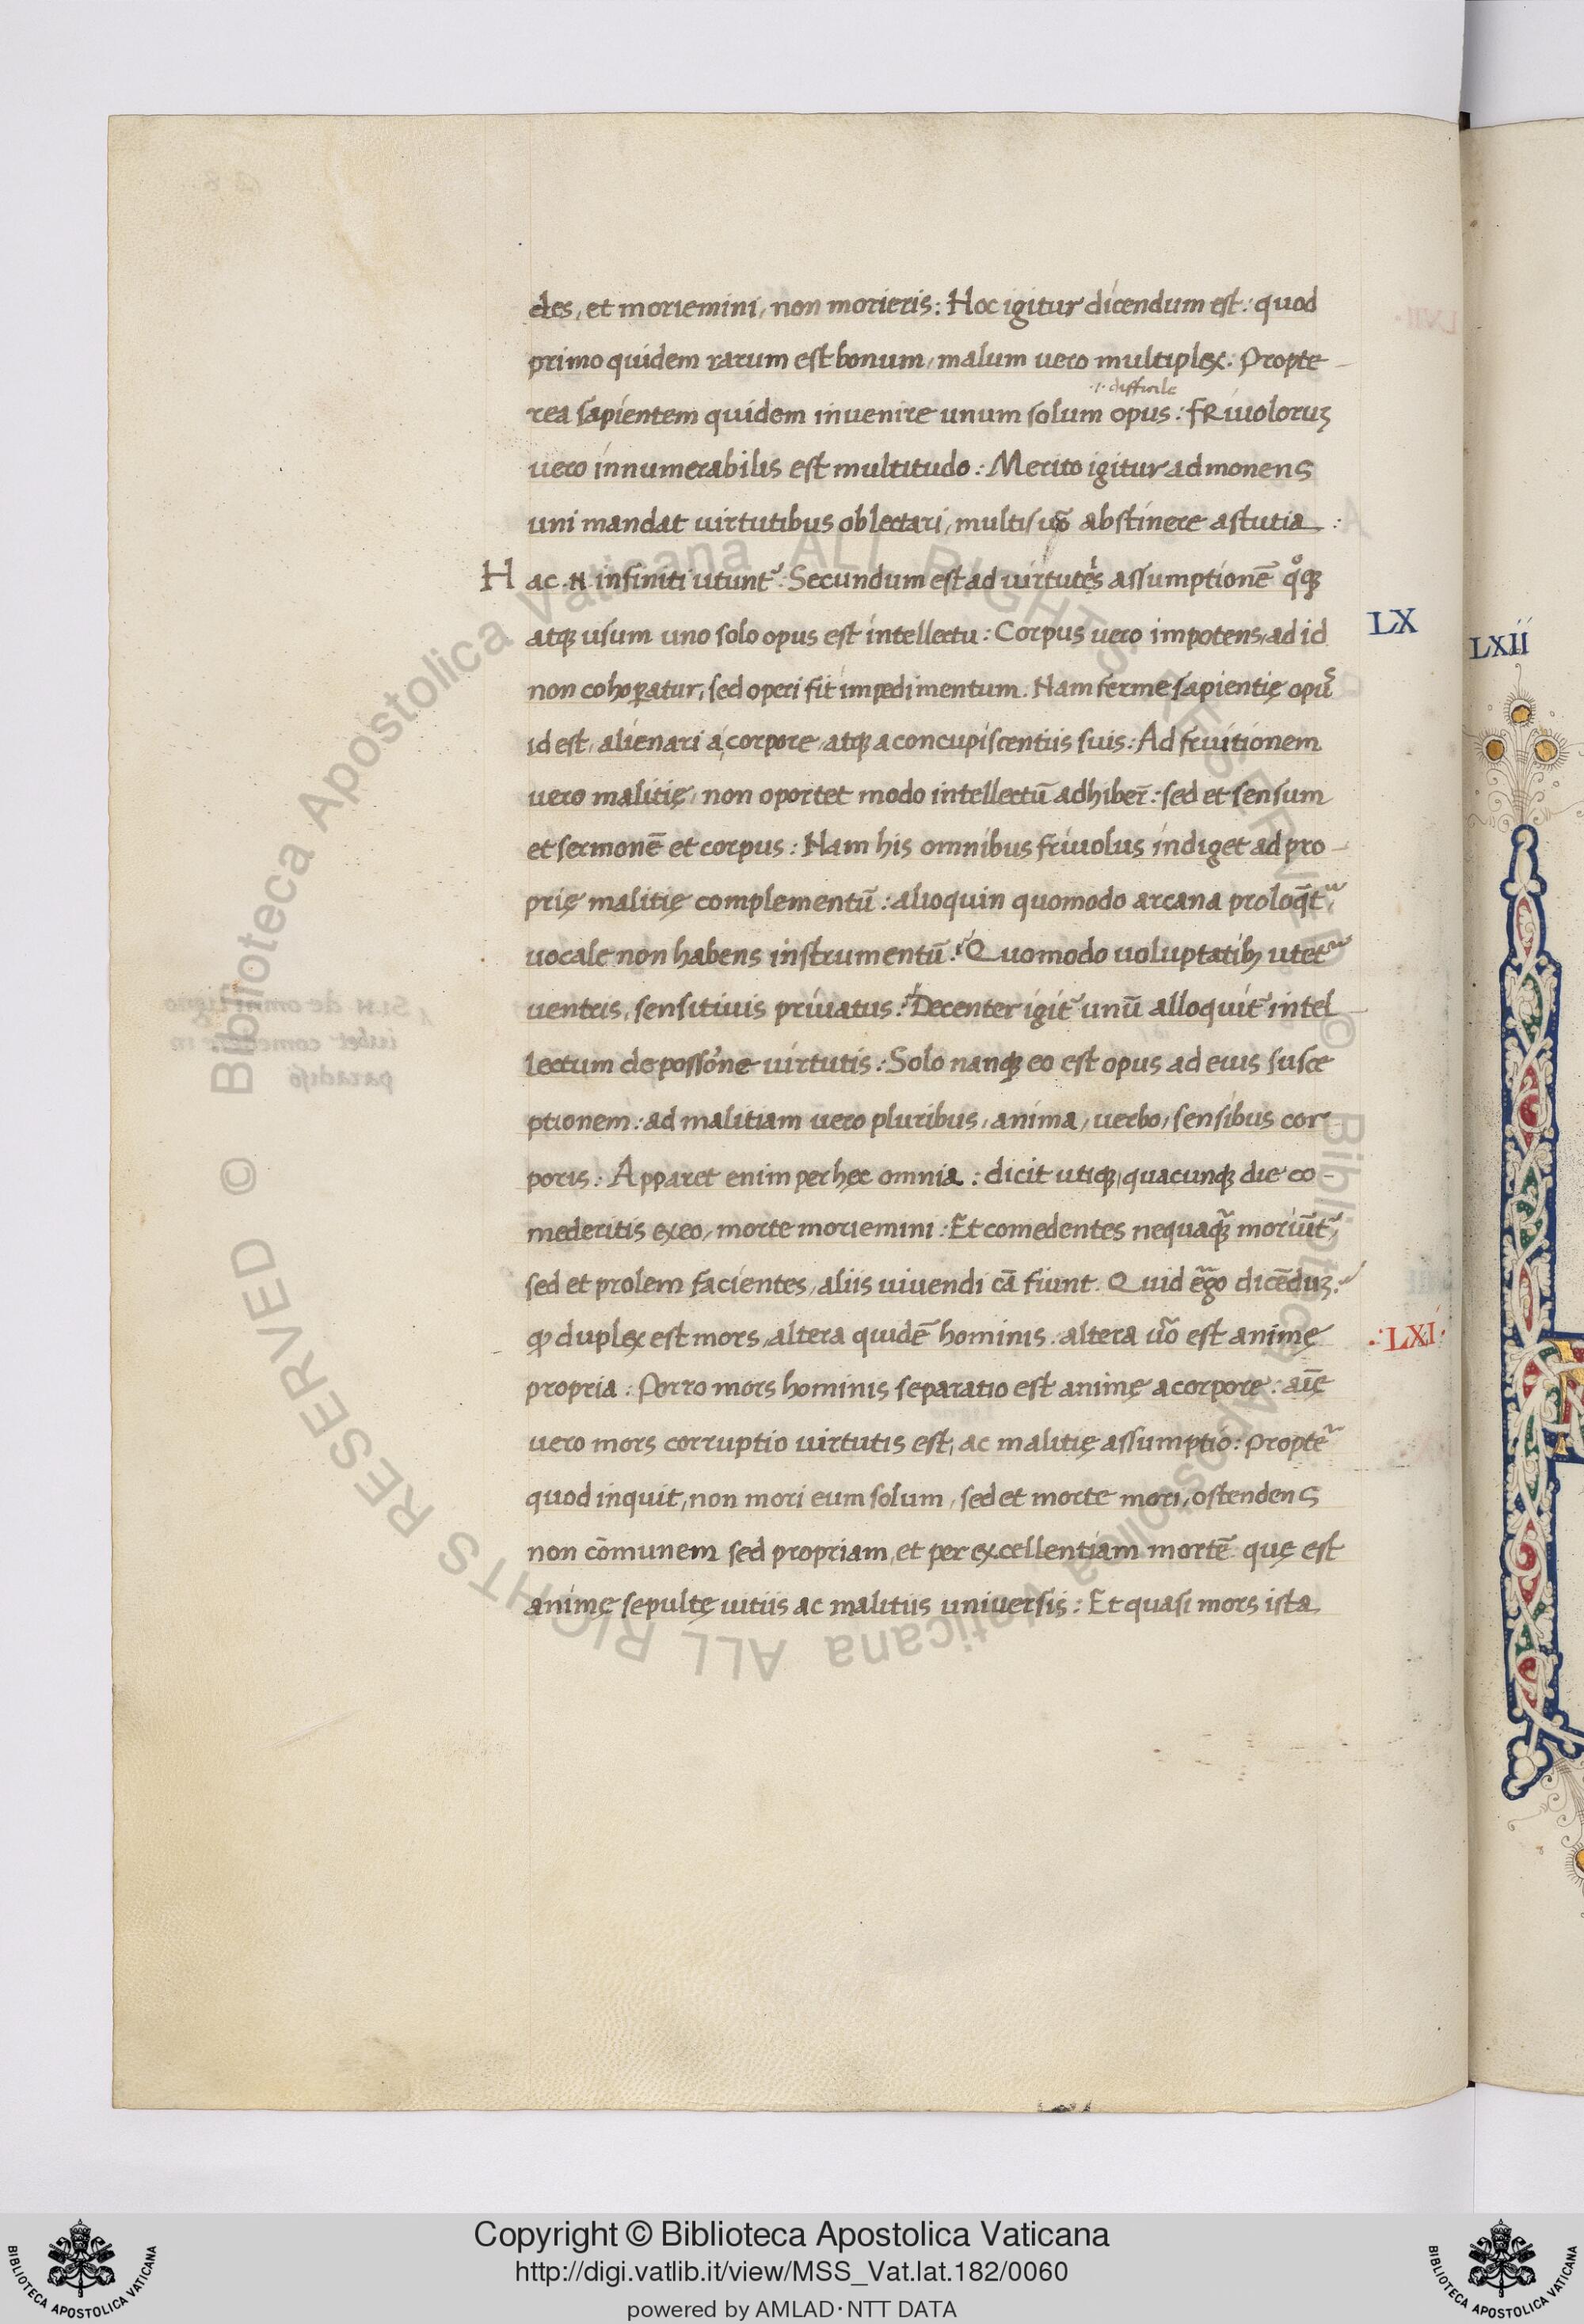 des, et moriemini, non morieris: Hoc igitur dicendum est: quod
primo quidem rarum est bonum, malum vero multiplex. Propte-
.i. difficile
rea sapientem quidem invenire unum solum opus: fRiuoloruʒ
uero innumerabilis est multitudo: Merito igitur admonens
uni mandat uirtutibus oblectari, multis uo͂ abstinere astutia:
Hac .N. infiniti utunt᷑: Secundum est ad uirtutis assumptionē qͦqꝫ
LX
atqꝫ usum uno solo opus est intellectu: Corpus uero impotens, ad id
LXii
non cohoꝑatur, sed operi fit impedimentum. Nam ferme sapientię opus
id est, alienari a corpore, atqꝫ a concupiscentiis suis: Ad fruitionem
uero malitię, non oportet modo intellectū adhiber̄: sed et sensum
et sermonē et corpus: Nam his omnibus friuolus indiget ad pro-
prię malitię complementū: alioquin quomodo arcana proloq̄t᷑,
uocale non habens instrumentū? Quomodo uoluptatibꝫ utet᷑
uentris, sensitiuis priuatus? Decenter igit᷑ unū alloquit᷑ intel
lectum de possōne uirtutis: Solo nanqꝫ eo est opus ad euis susce
ptionem: ad malitiam uero pluribus, anima, uerbo, sensibus cor
poris: Apparet enim per hęc omnia: dicit utiqꝫ, quacunqꝫ die co-
mederitis ex eo, morte moriemini: Et comedentes nequaqꝫ̃ moriūt᷑,
sed et prolem facientes, aliis uiuendi cā fiunt. Quid er̄go dicēduʒ?
ꝙ duplex est mors, altera quidē hominis. altera uo͂ est animę
.:LXI:
propria: Porro mors hominis separatio est animę a corpore: aīę
uero mors corruptio uirtutis est, ac malitię assumptio: Propte᷑
quod inquit, non mori eum solum, sed et morte mori, ostendens
non cōmunem sed propriam, et per excellentiam mortē quę est
animę sepultę uitiis ac malitiis uniuersis: Et quasi mors ista
© Biblioteca Apostolica Vaticana ALL RIGHTS RESERVED © Biblioteca Apostolica Vaticana ALL RIGHTS RESERVED
Copyright © Biblioteca Apostolica Vaticana
http://digi.vatlib.it/view/MSS_Vat.lat.182/0060
powered by AMLAD·NTT DATA
BIBLIOTECA APOSTOLICA VATICANA
BIBLIOTECA APOSTOLICA VATICANA